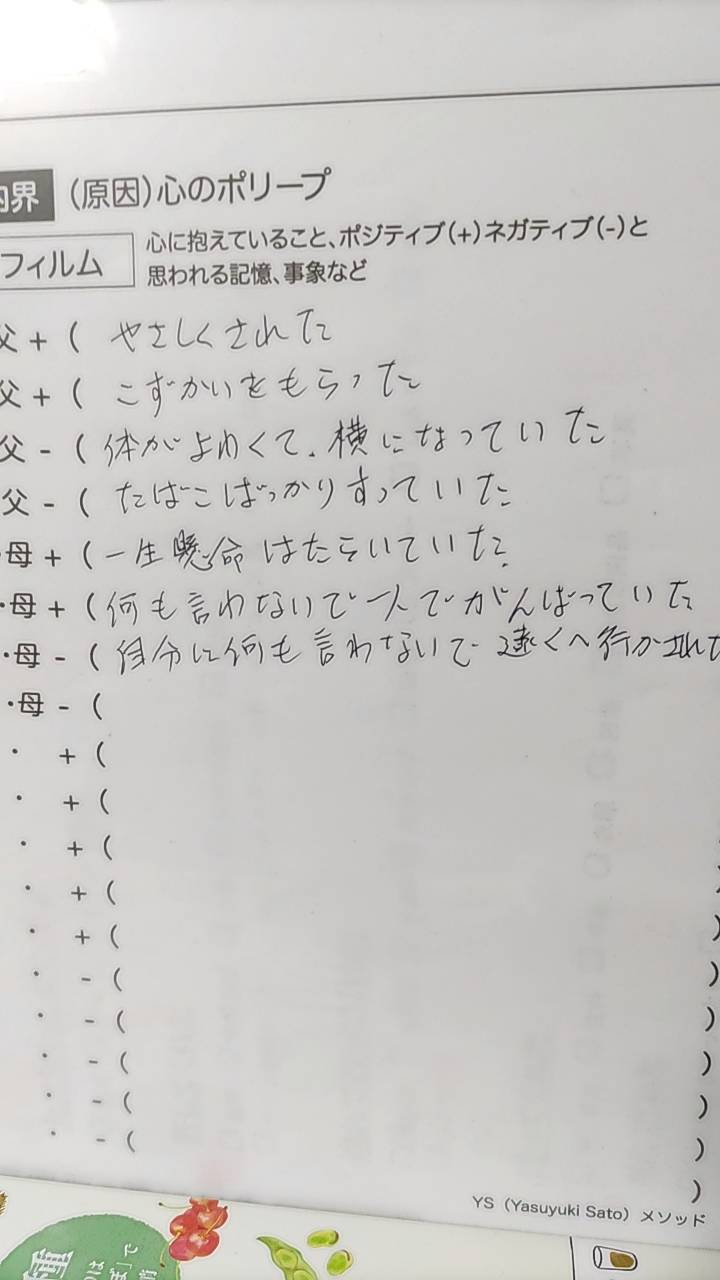 内界 (原因)心のポリープ
フィルム 心に抱えていること、ポジティブ(+)ネガティブ(-)と
思われる記憶、事象など
父 + ( やさしくされた
父 + ( こずかいをもらった
父 - ( 体がよわくて、横になっていた
父 - ( たばこばっかりすっていた
・母 + ( 一生懸命はたらいていた
・母 + ( 何も言わないで一人でがんばっていた
・母 - ( 自分に何も言わないで遠くへ行かされた
・母 - (
・ + (
・ + (
・ + (
・ + (
・ + ( )
・ - ( )
・ - ( )
・ - ( )
・ - ( )
・ - ( )
)
YS（Yasuyuki Sato）メソッド